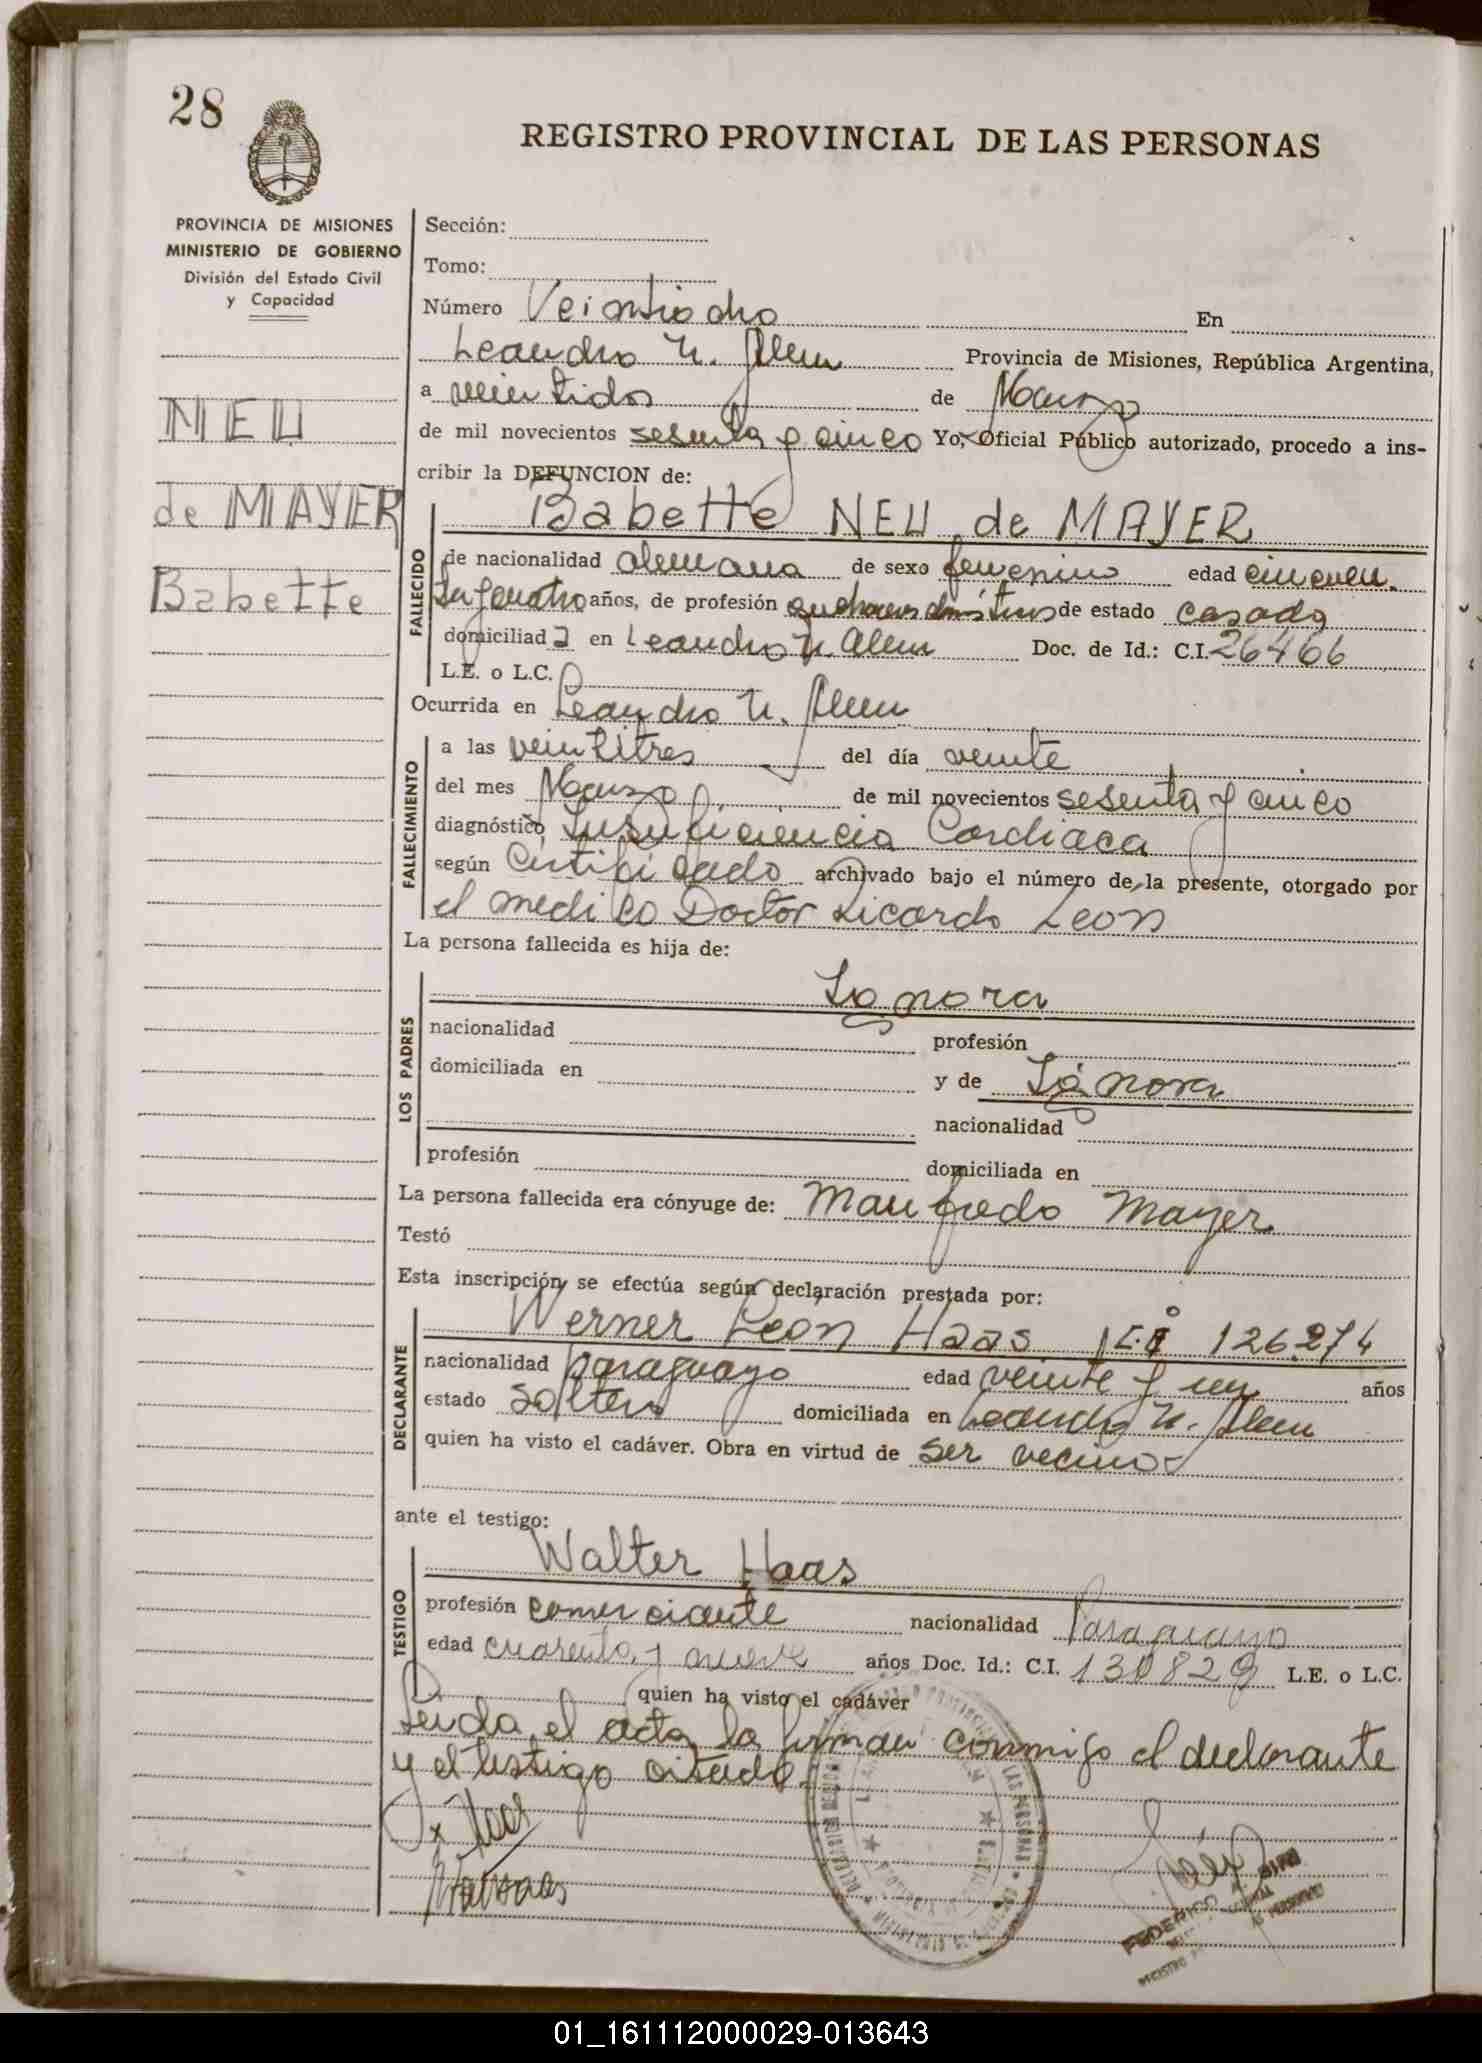 28
REGISTRO PROVINCIAL DE LAS PERSONAS
PROVINCIA DE MISIONES
MINISTERIO DE GOBIERNO
División del Estado Civil
y Capacidad
NEU
de MAYER
Babette
Sección:
Tomo:
Número Veintiocho En
Leandro N. Alem Provincia de Misiones, República Argentina,
a veintidos de Marzo
de mil novecientos sesenta y cinco Yo, Oficial Público autorizado, procedo a ins-
cribir la DEFUNCION de:
Babette NEU de MAYER
FALLECIDO
de nacionalidad alemana de sexo femenino edad cincuen
ta y cuatro años, de profesión quehaceres domésticos de estado casada
domiciliada en Leandro N. Alem Doc. de Id.: C.I. 26466
L.E. o L.C.
Ocurrida en Leandro N. Alem
FALLECIMIENTO
a las veintitres del día veinte
del mes Marzo de mil novecientos sesenta y cinco
diagnóstico Insuficiencia Cardiaca
según Certificado archivado bajo el número de la presente, otorgado por
el medico Doctor Ricardo Leon
La persona fallecida es hija de:
LOS PADRES
Ignora
nacionalidad profesión
domiciliada en y de Ignora
nacionalidad
profesión domiciliada en
La persona fallecida era cónyuge de: Manfredo Mayer
Testó
Esta inscripción se efectúa según declaración prestada por:
DECLARANTE
Werner León Haas 126274
nacionalidad paraguayo edad veinte y un años
estado soltero domiciliada en Leandro N. Alem
quien ha visto el cadáver. Obra en virtud de ser vecino
ante el testigo:
TESTIGO
Walter Haas
profesión comerciante nacionalidad Paraguayo
edad cuarenta y nueve años Doc. Id.: C.I. 130829 L.E. o L.C.
quien ha visto el cadáver
Leida el acta la firman conmigo el declarante
y el testigo citado.
Haas
FEDERICO
01_161112000029-013643